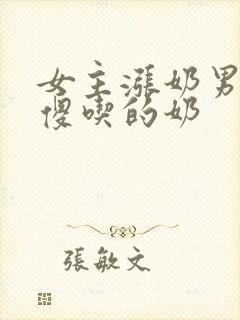 女主漲奶男
傻喫的奶
張敏文